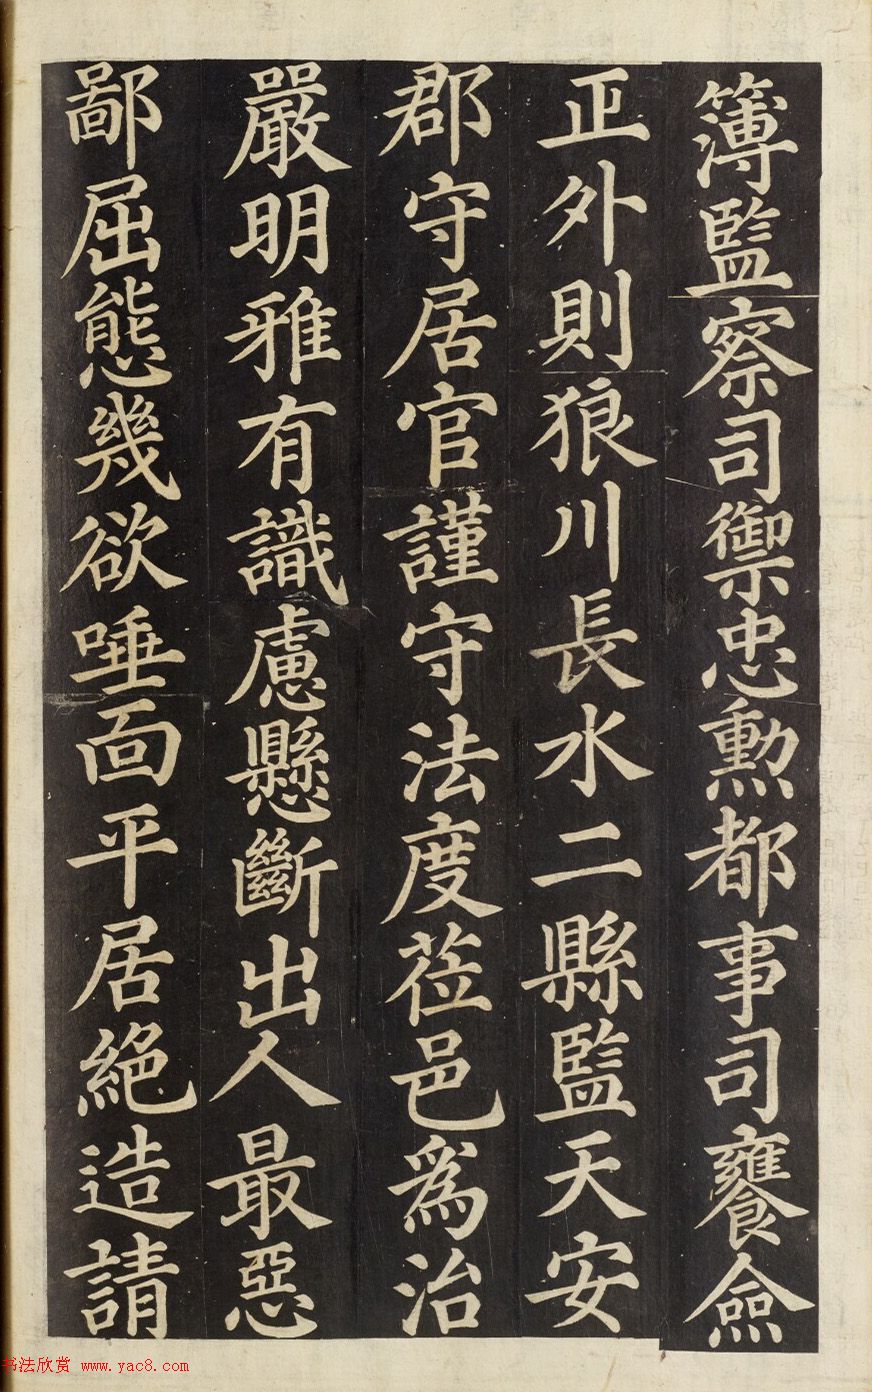 簿監察司禦忠勲都事司饔僉
正外則狼川長水二縣監天安
郡守居官謹守法度莅邑為治
嚴明雅有識慮懸斷出人最惡
鄙屈態幾欲唾面平居絕造請
书法欣赏 www.yac8.com